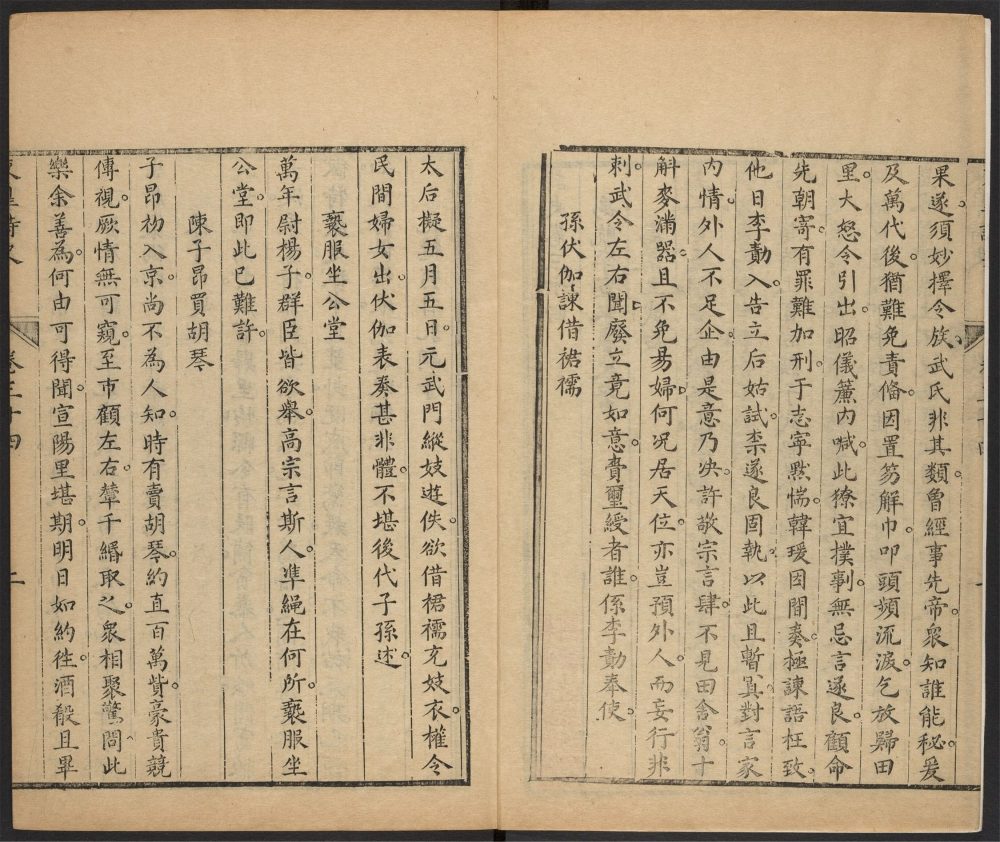 果遂須妙擇令族武氏非其類曾經事先帝衆知誰能秘爰
及萬代後猶難免責俻因置笏解巾叩頭頻流淚乞放歸田
里大怒令引出昭儀簾内喊此獠宜撲剚無忌言遂良顧命
先朝寄有罪難加刑于志寜黙惴韓瑗因間奏極諫語枉致
他日李勣入告立后姑試柰遂良固執以此且暫寘對言家
内情外人不足企由是意乃決許敬宗言肆不見田舎翁十
斛麥滿器且不免昜婦何况居天位亦豈預外人而妄行非
刺武令左右聞廢立竟如意賫璽綬者誰係李勣奉使
孫伏伽諌借裙襦
太后擬五月五日元武門縱妓遊佚欲借裙襦充妓衣權令
民間婦女出伏伽表奏甚非體不堪後代子孫述
褻服坐公堂
萬年尉楊子群臣皆欲舉高宗言斯人凖繩在何所褻服坐
公堂即此已難許
陳子昂買胡琴
子昂初入京尚不為人知時有賣胡琴約直百萬貲豪貴競
傳視厥情無可窺至市顧左右輦千緡取之衆相聚驚問此
樂余善為何由可得聞宣陽里堪期明日如約徃酒殽且畢
卷三十四
二